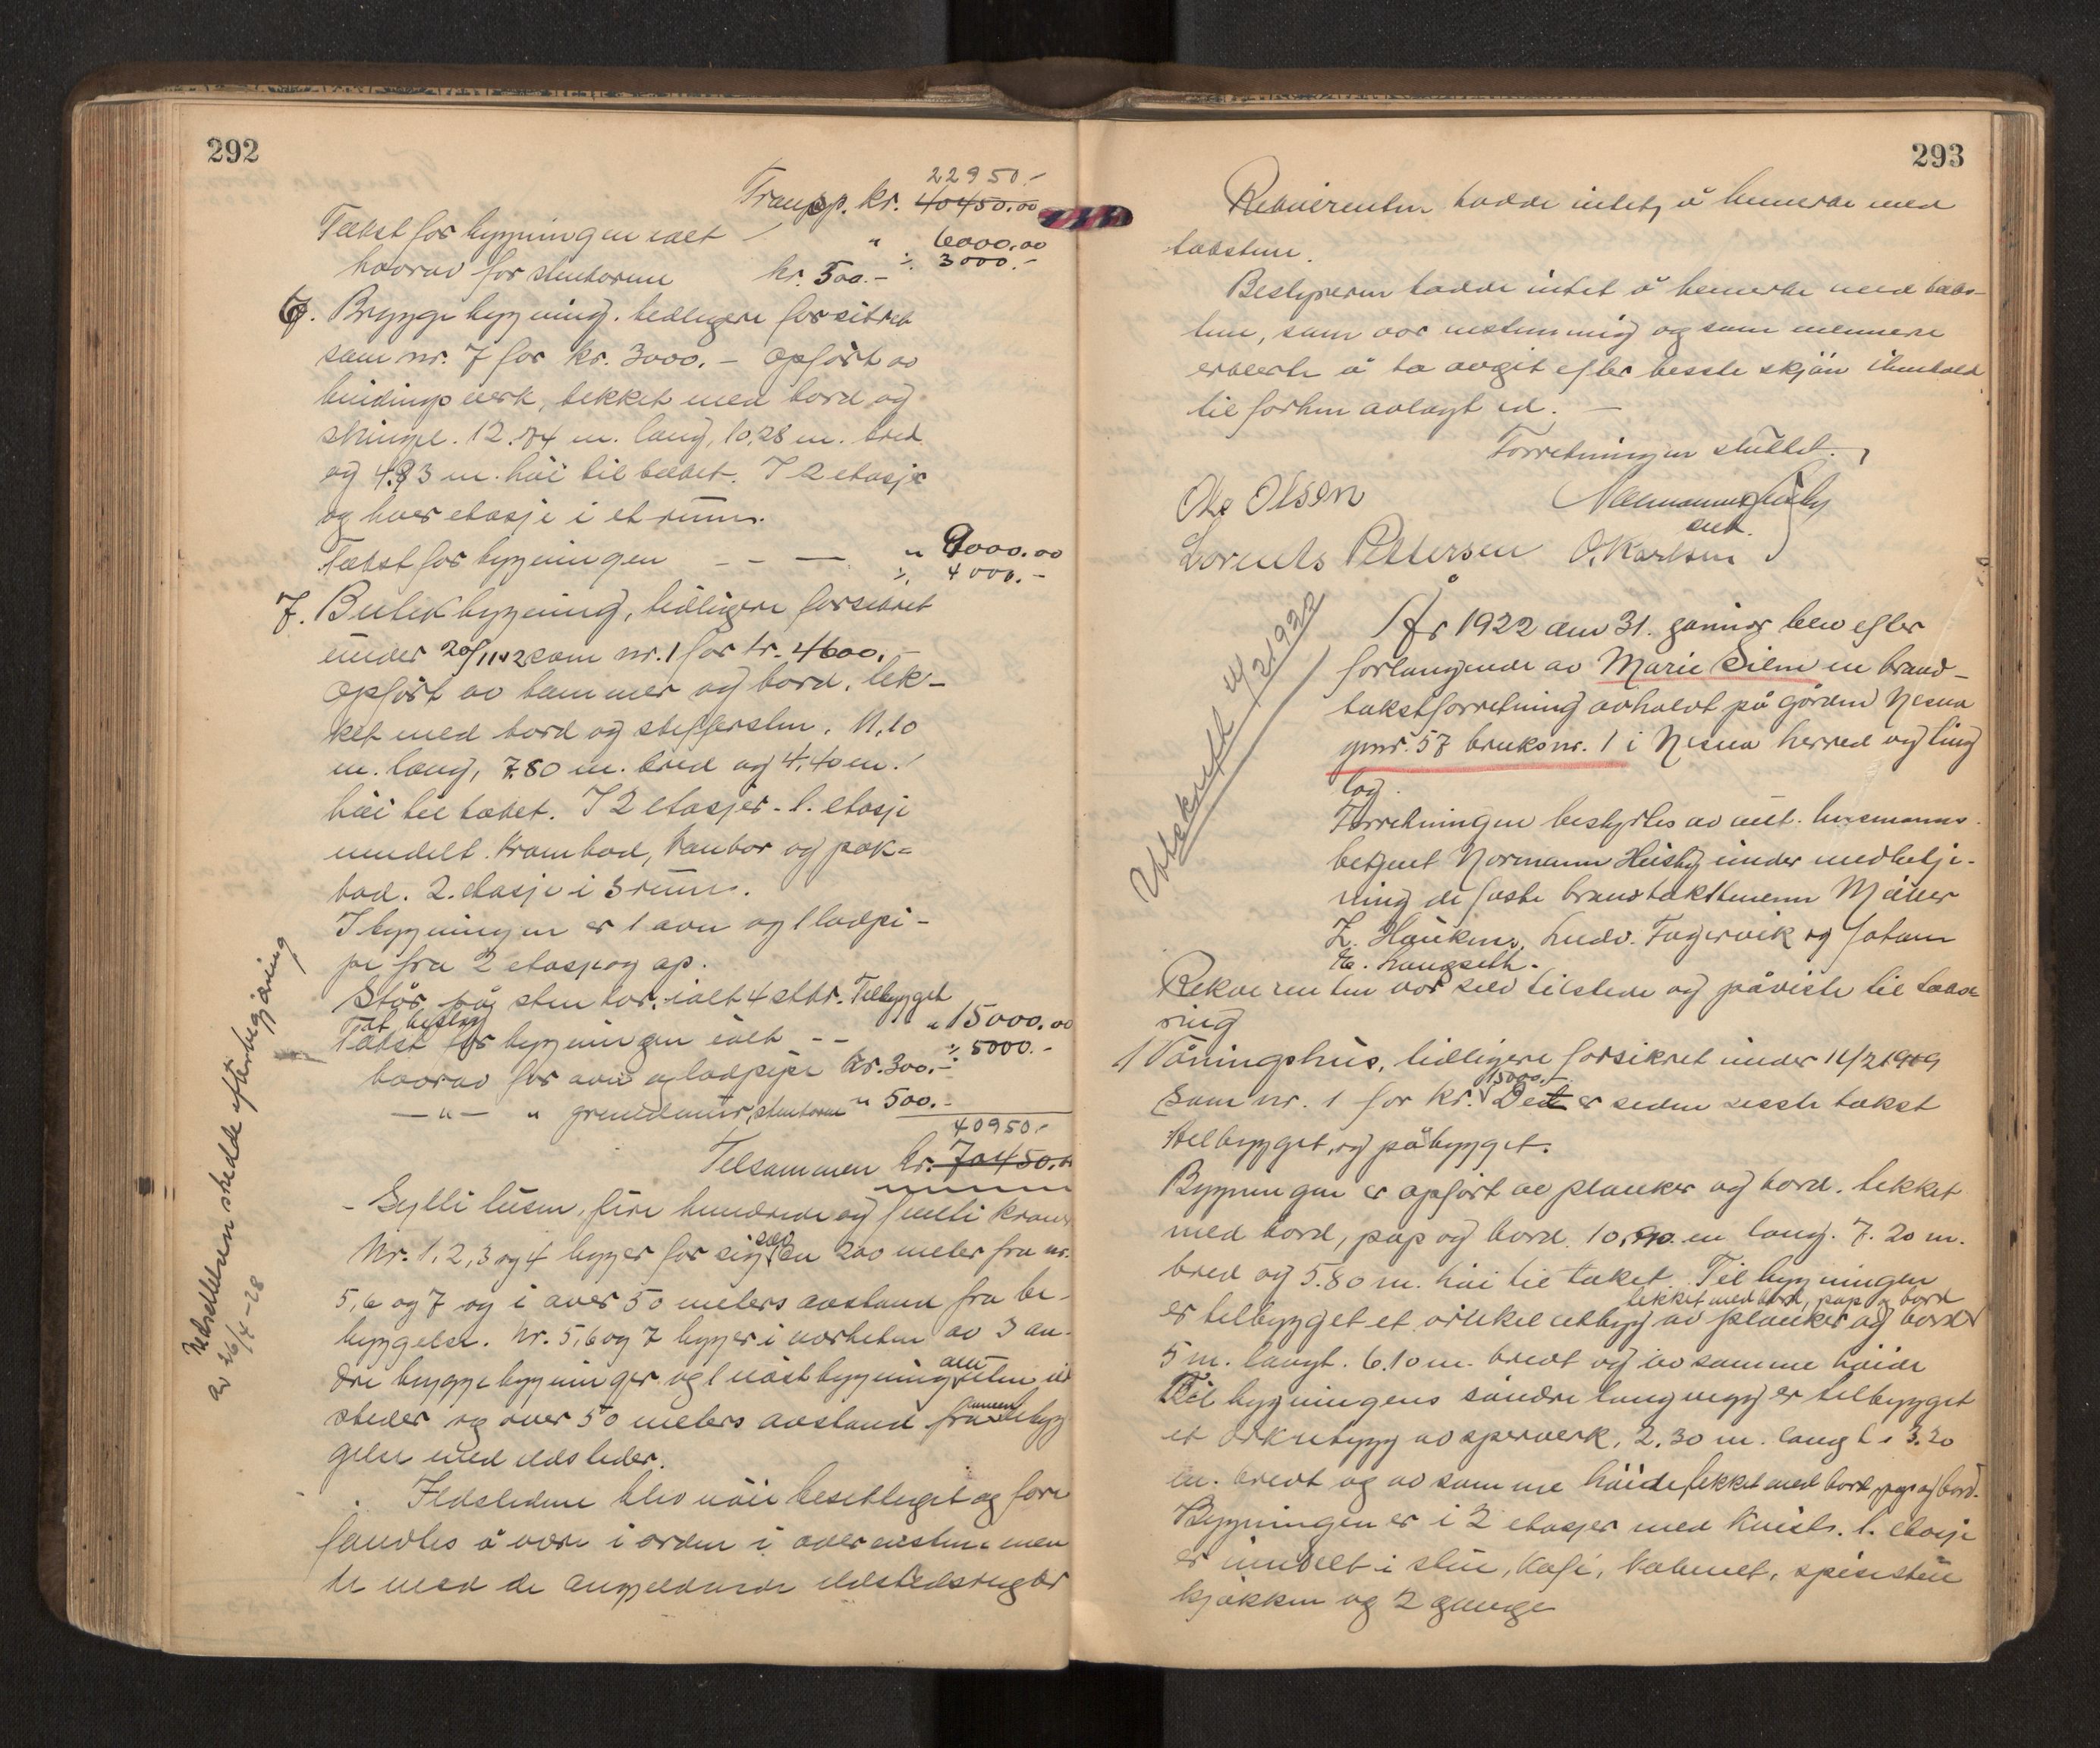 292
22950.-
Transp. kr. 40450.00
Takst for bygningen ialt " 6000.00
hvorav for stentorne kr. 500.- ÷ 3000.-
6. Bryggebygning. tidligere forsikret
som nr. 7 for kr. 3000.- Opført av
bindingsverk, tekket med bord og
shingel. 12.74 m. lang, 10.28 m. bred
og 4.93 m. høi til taket. I 2 etasje
og hver etasje i et rum.
Takst for bygningen - - — " 9000.00
÷ 4000.-
7. Butikbygning, tidligere forsikret
under 20/11 12 som nr. 1 for kr. 4600.-
Opført av tømmer og bord, tek-
ket med bord og skifersten. 11.10
m. lang, 7.80 m. bred og 4.40 m.
høi til taket. I 2 etasjer. 1. etasje
inndelt krambod, kontor og pak-
bod. 2. etasje i 3 rum.
I bygningen er 1 ovn og 1 lodpi-
pe fra 2 etasje og op.
Står på sten tor, ialt 4 stkr. Tilbygget
Takst for bygningen ialt - - " 15000.00
÷ 5000.-
hvorav for ovn og lodpipe kr. 300.-
— " — " grundmur, stentorne " 500.-
40950.-
Tilsammen kr. 70450.00
- Sytti tusen, fire hundrede og femti kroner
Nr. 1, 2, 3 og 4 ligger for sig selv ca 200 meter fra nr.
5, 6 og 7 og i over 50 meters avstand fra be-
byggelse. Nr. 5, 6 og 7 ligger i nærheten av 3 an-
dre bryggebygninger og 1 nøstbygning alle uten ild
steder og over 50 meters avstand fra annen bebyg
gelse med ildsteder.
Ildstedene blev nøie besiktiget og fore
fandtes å være i orden i overensstemmen
te med de angjeldende ildstedsregler
Nedsettelsen skedde efter begjæring
av 26/4-28
293
Rekvirenten hadde intet å bemerke med
taksten.
Bestyreren hadde intet å bemerke med tak-
sten, som var enstemmig og som mennene
erklærte å ha avgit efter beste skjøn i henhold
til forhen avlagt ed. —
Forretningen sluttet.
Ole Olsen Normann Husby
Lorents Pettersen O. Karlsen
Utskrift 11/2 1922
År 1922 den 31. januar blev efter
forlangende av Marie Silem en brand-
takstforretning avholdt på gården Nesna
gnr. 57 bruksnr. 1 i Nesna herred og ting
lag.
Forretningen bestyrtes av aut. lensmanns
betjent Normann Husby under medbetje-
ning de faste brandtakstmenn Meier
Z. Haukins, Ludv. Fagervik og Johan
E. Langseth.
Rekvirenten var selv tilstede og påviste til takse
ring
1 Våningshus, tidligere forsikret under 14/2 1909
Som nr. 1 for kr. 15000.- Det er siden siste takst
tilbygget, og påbygget.
Bygningen er opført av planker og bord. tekket
med bord, pap og bord. 10.90 m lang. 7.20 m.
bred og 5.80 m. høi til taket. Til bygningen
tekket med bord, pap og bord
er tilbygget et vinkel utbygg av planker og bord
5 m. langt. 6.10 m. bredt og av samme høide
Til bygningens søndre langvegg er tilbygget
et arkutbygg av sperverk, 2.30 m. langt. 3.20
m. bredt og av samme høide tekket med bord, pap og bord.
Bygningen er i 2 etasjer med kvist. 1. etasje
er inndelt i stue, kafe, kabinet, spisestue
kjøkken og 2 gange